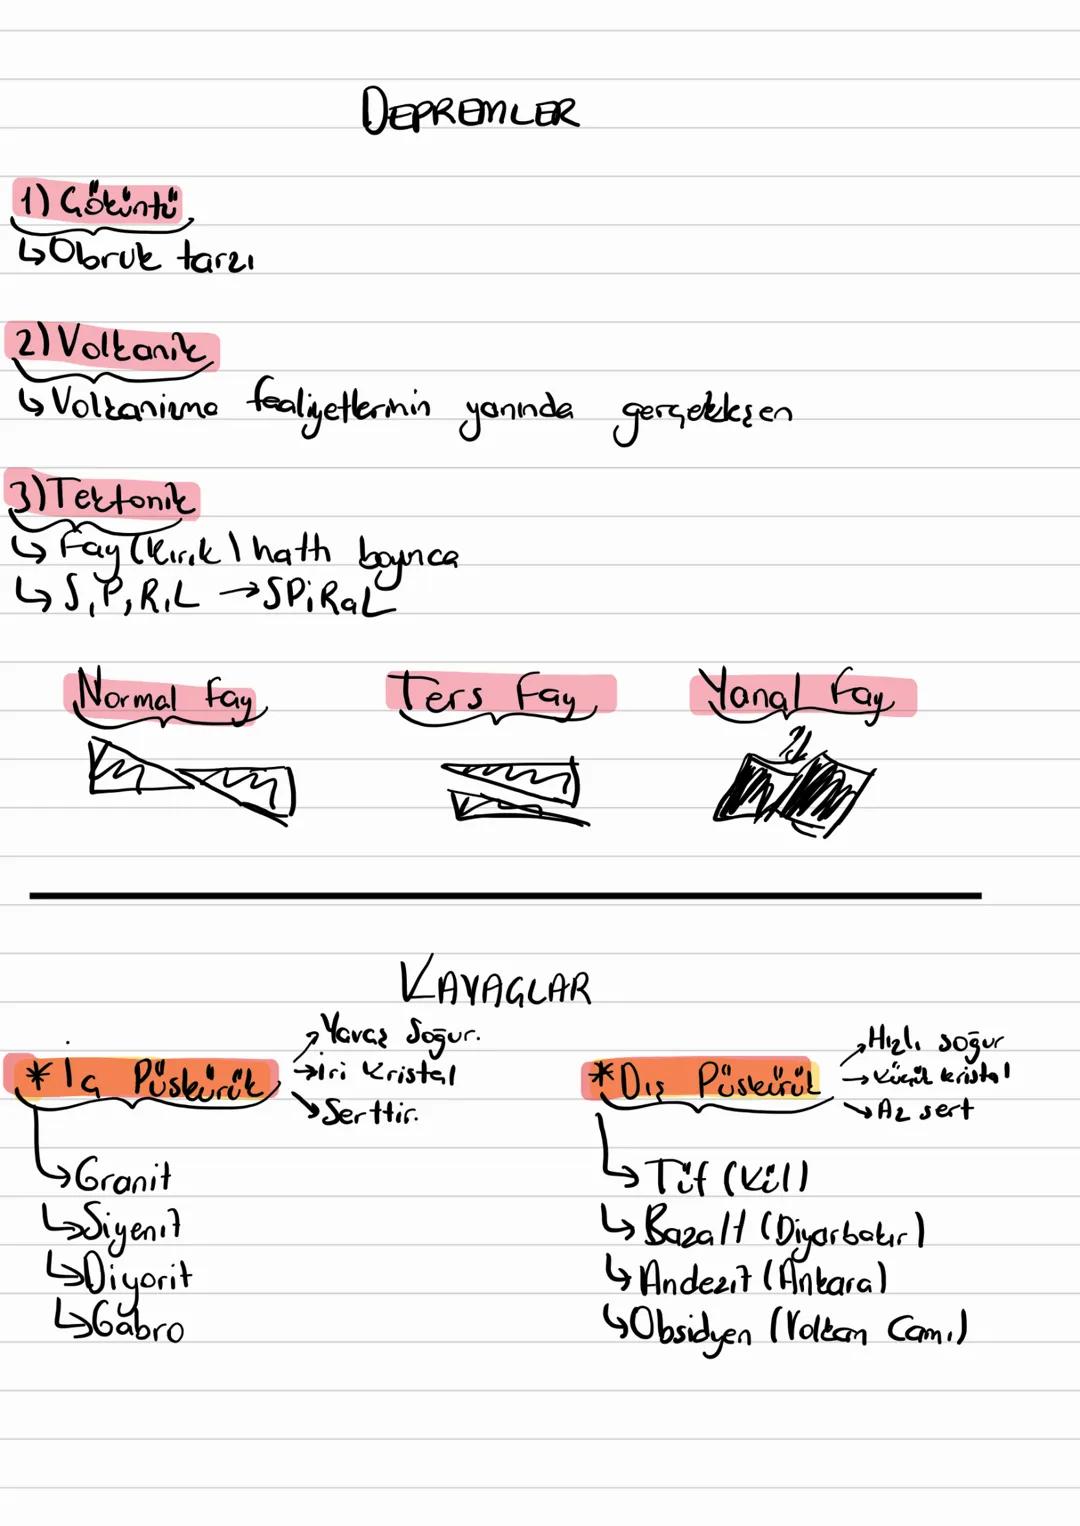 DEPREMLER
1) Çöküntü
↳ Obruk tarzı
2) Volkanik
↳ Volkanizma faaliyetlerinin yanında gerçekleşen
3) Tektonik
↳ Fay (kırık) hattı boyunca
↳ S, P, R, L → SPiRaL
Normal fay Ters Fay Yanal Fay
KAYAÇLAR
* İç Püskürük
→ Yavaş Soğur.
→ İri Kristal
→ Serttir.
↳ Granit
↳ Siyenit
↳ Diyorit
↳ Gabro
* Dış Püskürük
→ Hızlı soğur
→ Küçük kristal
→ Az sert
↳ Tüf (Kül)
↳ Bazalt (Diyarbakır)
↳ Andezit (Ankara)
↳ Obsidyen (Volkan Camı)